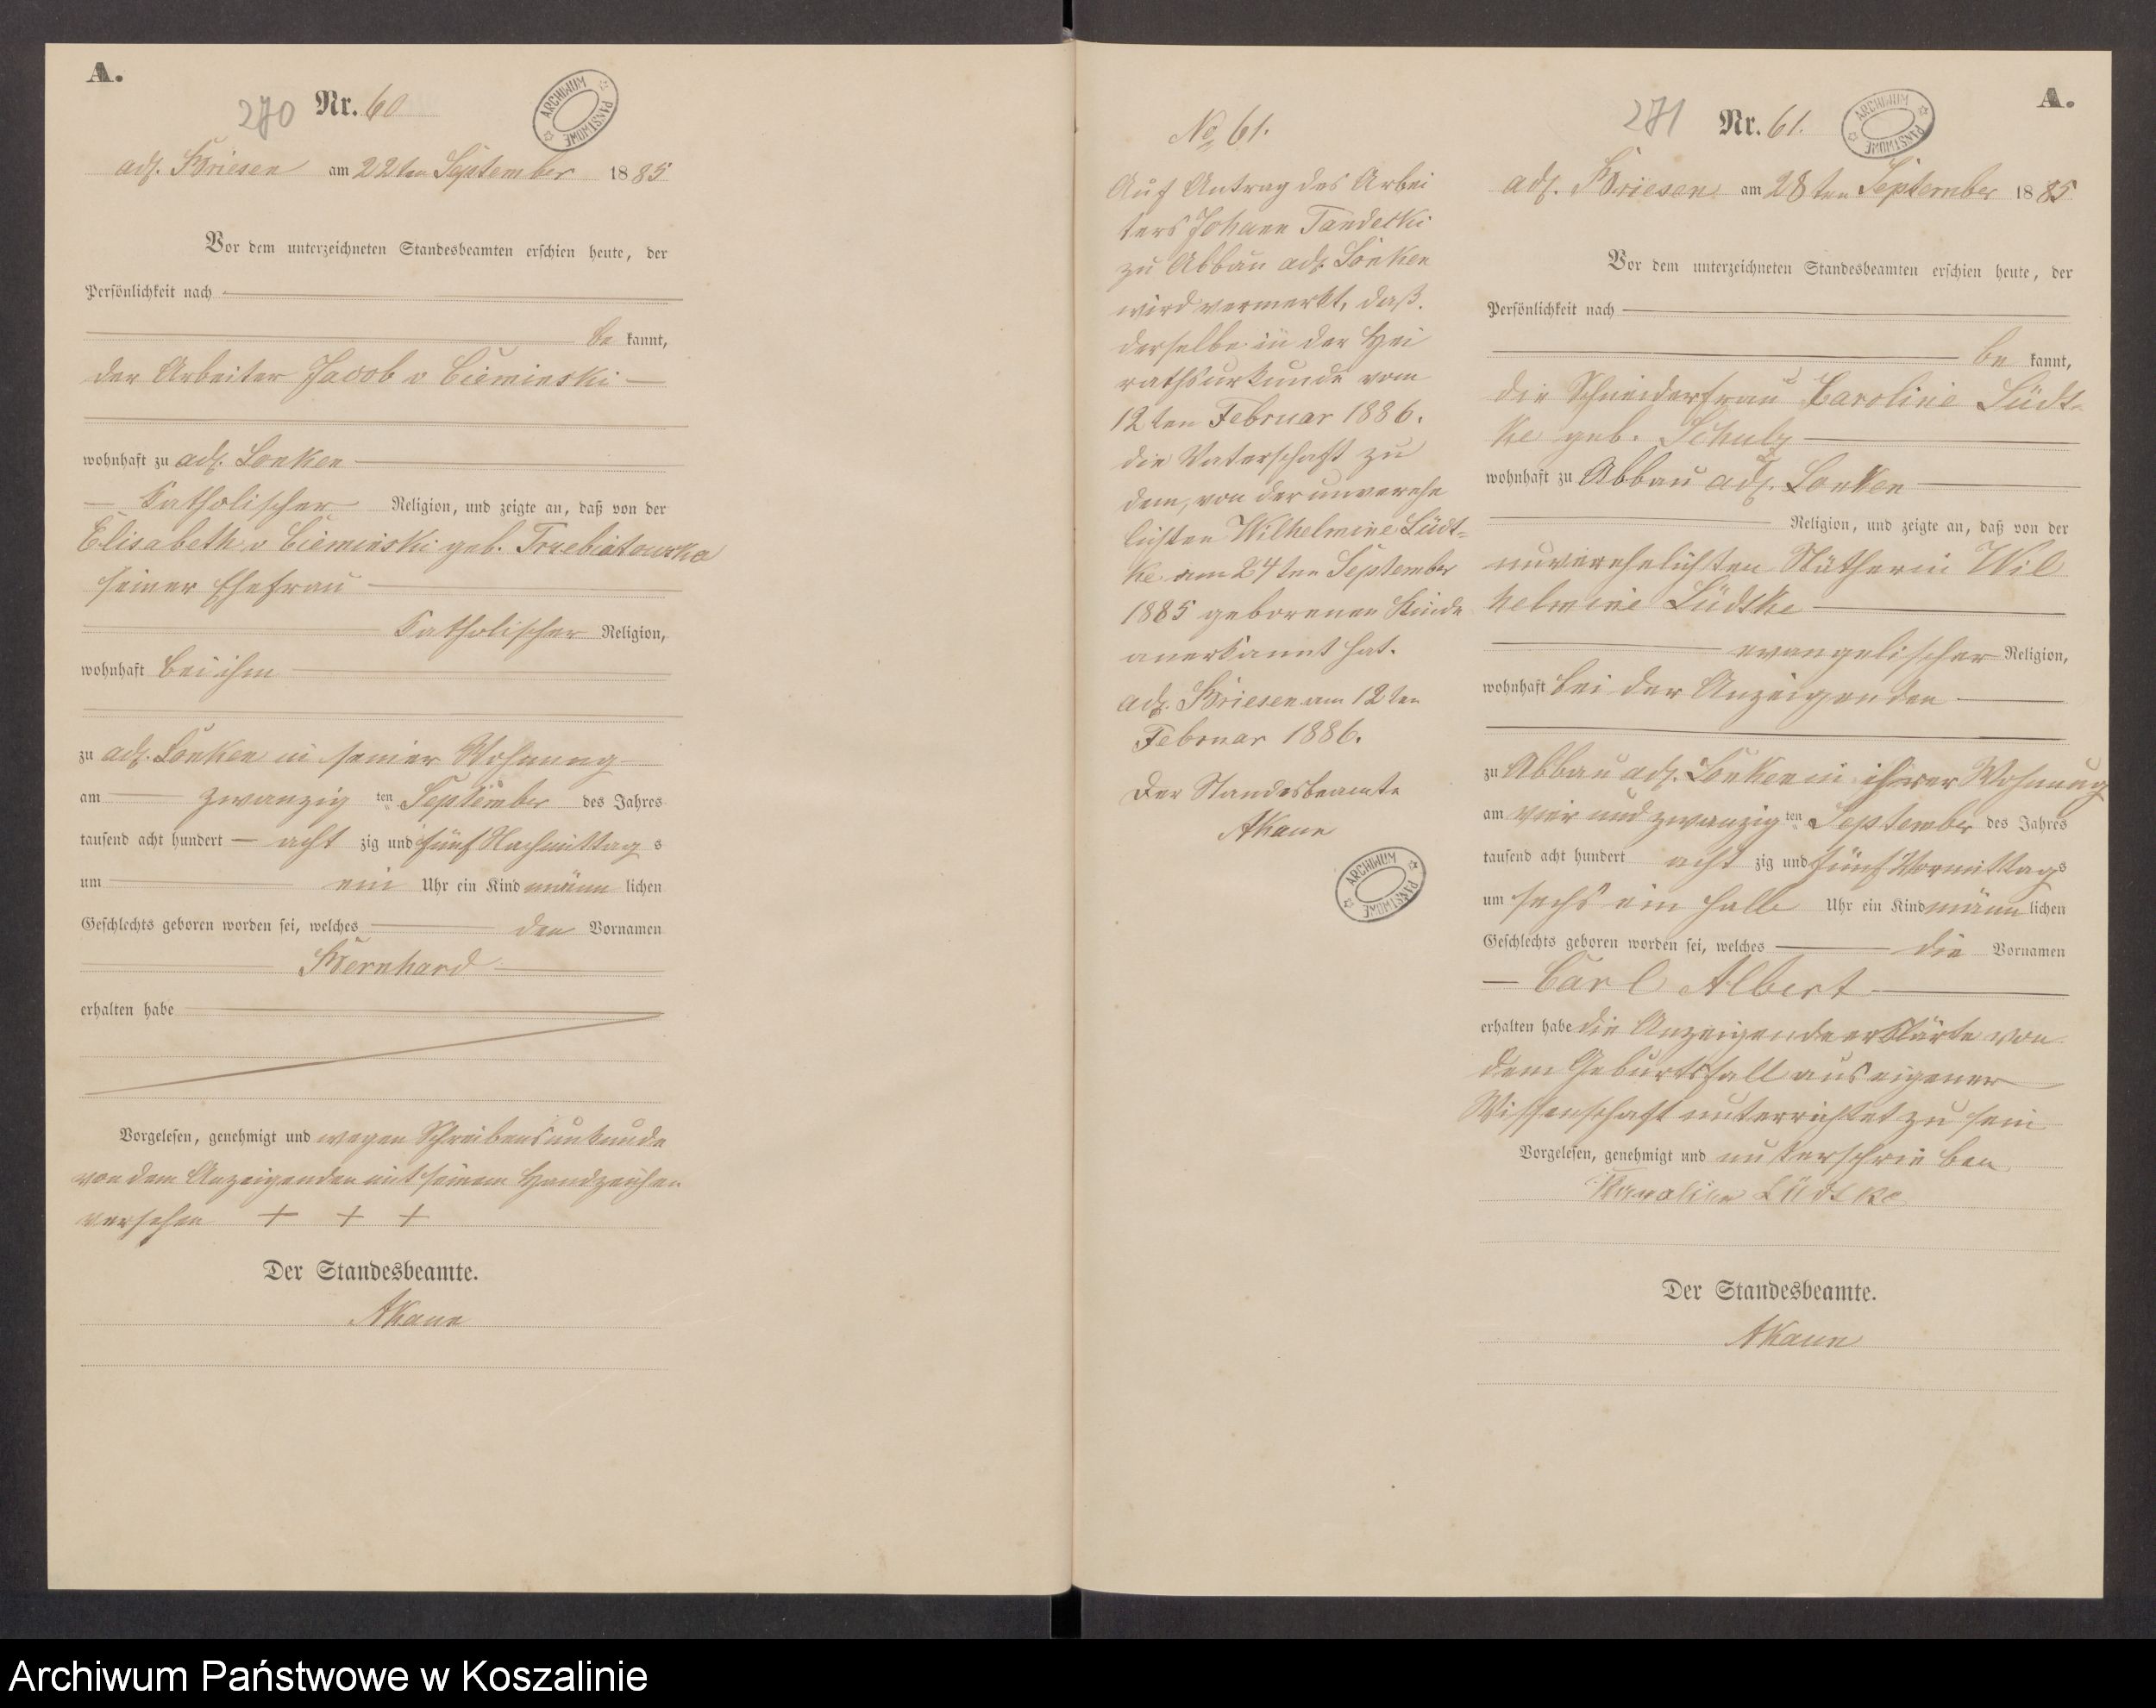 A.
270 Nr. 60
ARCHIWUM PAŃSTWOWE
adl. Briesen am 22ten September 1885
Vor dem unterzeichneten Standesbeamten erschien heute, der
Persönlichkeit nach
be kannt,
der Arbeiter Jacob v Cieminski
wohnhaft zu adl. Lonken
katholischer Religion, und zeigte an, daß von der
Elisabeth v Cieminski geb. Trzebiatowska
seiner Ehefrau
katholischer Religion,
wohnhaft bei ihm
zu adl. Lonken in seiner Wohnung
am zwanzig ten September des Jahres
tausend acht hundert acht zig und fünf Nachmittag s
um ein Uhr ein Kind männ lichen
Geschlechts geboren worden sei, welches den Vornamen
Bernhard
erhalten habe
Vorgelesen, genehmigt und wegen Schreibensunkunde
von dem Anzeigenden mit seinem Handzeichen
versehen + + +
Der Standesbeamte.
AKaun
No 61.
Auf Antrag des Arbei
ters Johann Tandetzki
zu Abbau adl. Lonken
wird vermerkt, daß
derselbe in der Hei
rathsurkunde vom
12ten Februar 1886.
die Vaterschaft zu
dem, von der unverehe
lichten Wilhelmine Lüdt-
ke am 24ten September
1885 geborenen Kinde
anerkannt hat.
adl. Briesen am 12ten
Februar 1886.
Der Standesbeamte
AKaun
ARCHIWUM PAŃSTWOWE
A.
271 Nr. 61.
ARCHIWUM PAŃSTWOWE
adl. Briesen am 28ten September 1885
Vor dem unterzeichneten Standesbeamten erschien heute, der
Persönlichkeit nach
be kannt,
die Schneiderfrau Caroline Lüdt-
ke geb. Schulz
wohnhaft zu Abbau adl. Lonken
Religion, und zeigte an, daß von der
unverehelichten Näherin Wil
helmine Lüdtke
evangelischer Religion,
wohnhaft bei der Anzeigenden
zu Abbau adl. Lonken in ihrer Wohnung
am vier und zwanzig ten September des Jahres
tausend acht hundert acht zig und fünf Vormittag s
um sechs ein halb Uhr ein Kind männ lichen
Geschlechts geboren worden sei, welches die Vornamen
Carl Albert
erhalten habe die Anzeigende erklärte von
dem Geburtsfall aus eigener
Wissenschaft unterrichtet zu sein
Vorgelesen, genehmigt und unterschrieben
Karoline Lüdtke
Der Standesbeamte.
AKaun
Archiwum Państwowe w Koszalinie